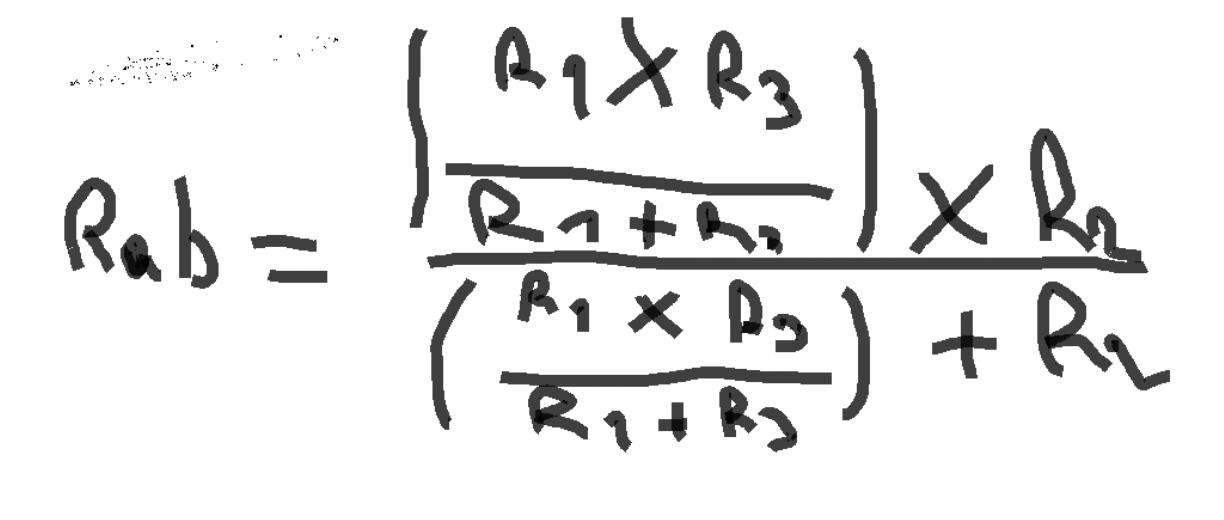 Rab = ((R1 X R3) / (R1 + R3)) X R2 / ((R1 X R3) / (R1 + R3)) + R2